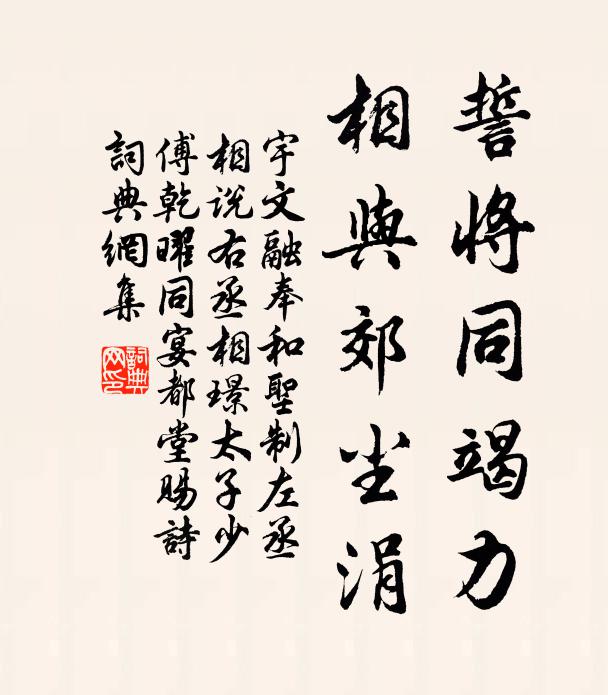 誓將同竭力
相與郊尘涓
宇文融奉和聖制左丞
相説右丞相璟太子少
傅乾曜同宴都堂賜詩
詞典網集
詞典网印